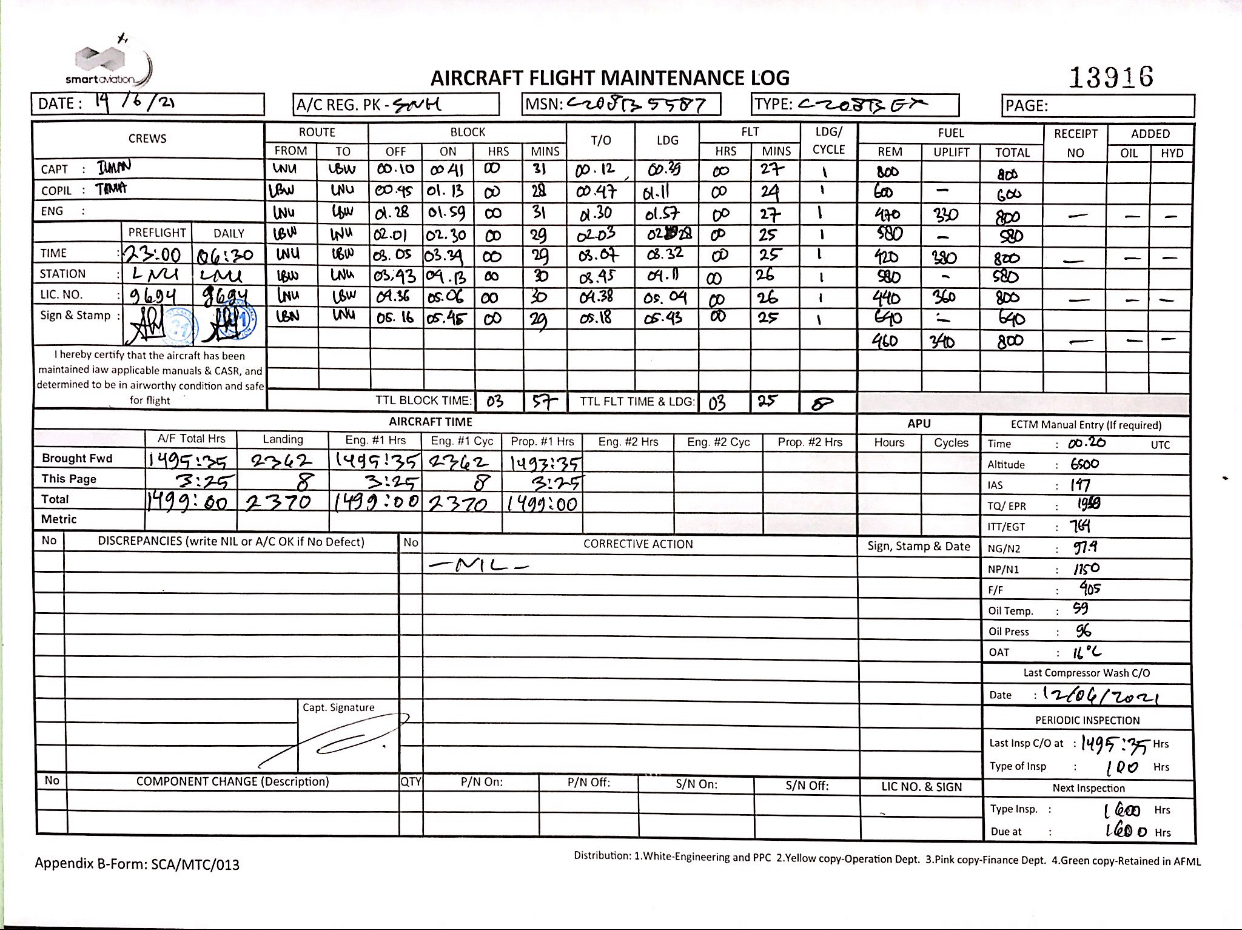 smartaviation
AIRCRAFT FLIGHT MAINTENANCE LOG
13916
DATE : 14/6/21
A/C REG. PK - SNH
MSN: C208B5587
TYPE: C208B EX
PAGE:
CREWS ROUTE BLOCK T/O LDG FLT LDG/ CYCLE FUEL RECEIPT NO ADDED
FROM TO OFF ON HRS MINS HRS MINS REM UPLIFT TOTAL OIL HYD
CAPT : IMAN LNU LBW 00.10 00 41 00 31 00.12 00.39 00 27 1 800 800
COPIL : TOMA LBW LNU 00.45 01.13 00 28 00.47 01.11 00 24 1 600 - 600
ENG : LNU LBW 01.28 01.59 00 31 01.30 01.57 00 27 1 470 330 800 — — —
PREFLIGHT DAILY LBW LNU 02.01 02.30 00 29 02.03 02 28 00 25 1 580 - 580
TIME : 23:00 06:30 LNU LBW 03.05 03.34 00 29 03.07 03.32 00 25 1 420 380 800 — — —
STATION : LNU LNU LBW LNU 03.43 04.13 00 30 03.45 04.11 00 26 1 580 - 580
LIC. NO. : 9694 9694 LNU LBW 04.36 05.06 00 30 04.38 05.04 00 26 1 440 360 800 — — —
Sign & Stamp : LBN LNU 05.16 05.45 00 29 05.18 05.43 00 25 1 640 - 640
460 340 800 — — —
I hereby certify that the aircraft has been
maintained iaw applicable manuals & CASR, and
determined to be in airworthy condition and safe
for flight
TTL BLOCK TIME: 03 57 TTL FLT TIME & LDG: 03 25 8
AIRCRAFT TIME APU ECTM Manual Entry (If required)
A/F Total Hrs Landing Eng. #1 Hrs Eng. #1 Cyc Prop. #1 Hrs Eng. #2 Hrs Eng. #2 Cyc Prop. #2 Hrs Hours Cycles
Brought Fwd 1495:35 2362 1495:35 2362 1493:35
This Page 3:25 8 3:25 8 3:25
Total 1499:00 2370 1499:00 2370 1499:00
Metric
Time : 00.20 UTC
Altitude : 6500
IAS : 147
TQ/ EPR :
ITT/EGT : 764
NG/N2 : 97.9
NP/N1 : 1750
F/F : 405
Oil Temp. : 59
Oil Press : 96
OAT : 16°C
No DISCREPANCIES (write NIL or A/C OK if No Defect) No CORRECTIVE ACTION Sign, Stamp & Date
-NIL-
Last Compressor Wash C/O
Date : 12/06/2021
Capt. Signature
PERIODIC INSPECTION
Last Insp C/O at : 1495:35 Hrs
Type of Insp : 100 Hrs
Next Inspection
Type Insp. : 1600 Hrs
Due at : 1600 Hrs
No COMPONENT CHANGE (Description) QTY P/N On: P/N Off: S/N On: S/N Off: LIC NO. & SIGN
Appendix B-Form: SCA/MTC/013
Distribution: 1.White-Engineering and PPC 2.Yellow copy-Operation Dept. 3.Pink copy-Finance Dept. 4.Green copy-Retained in AFML